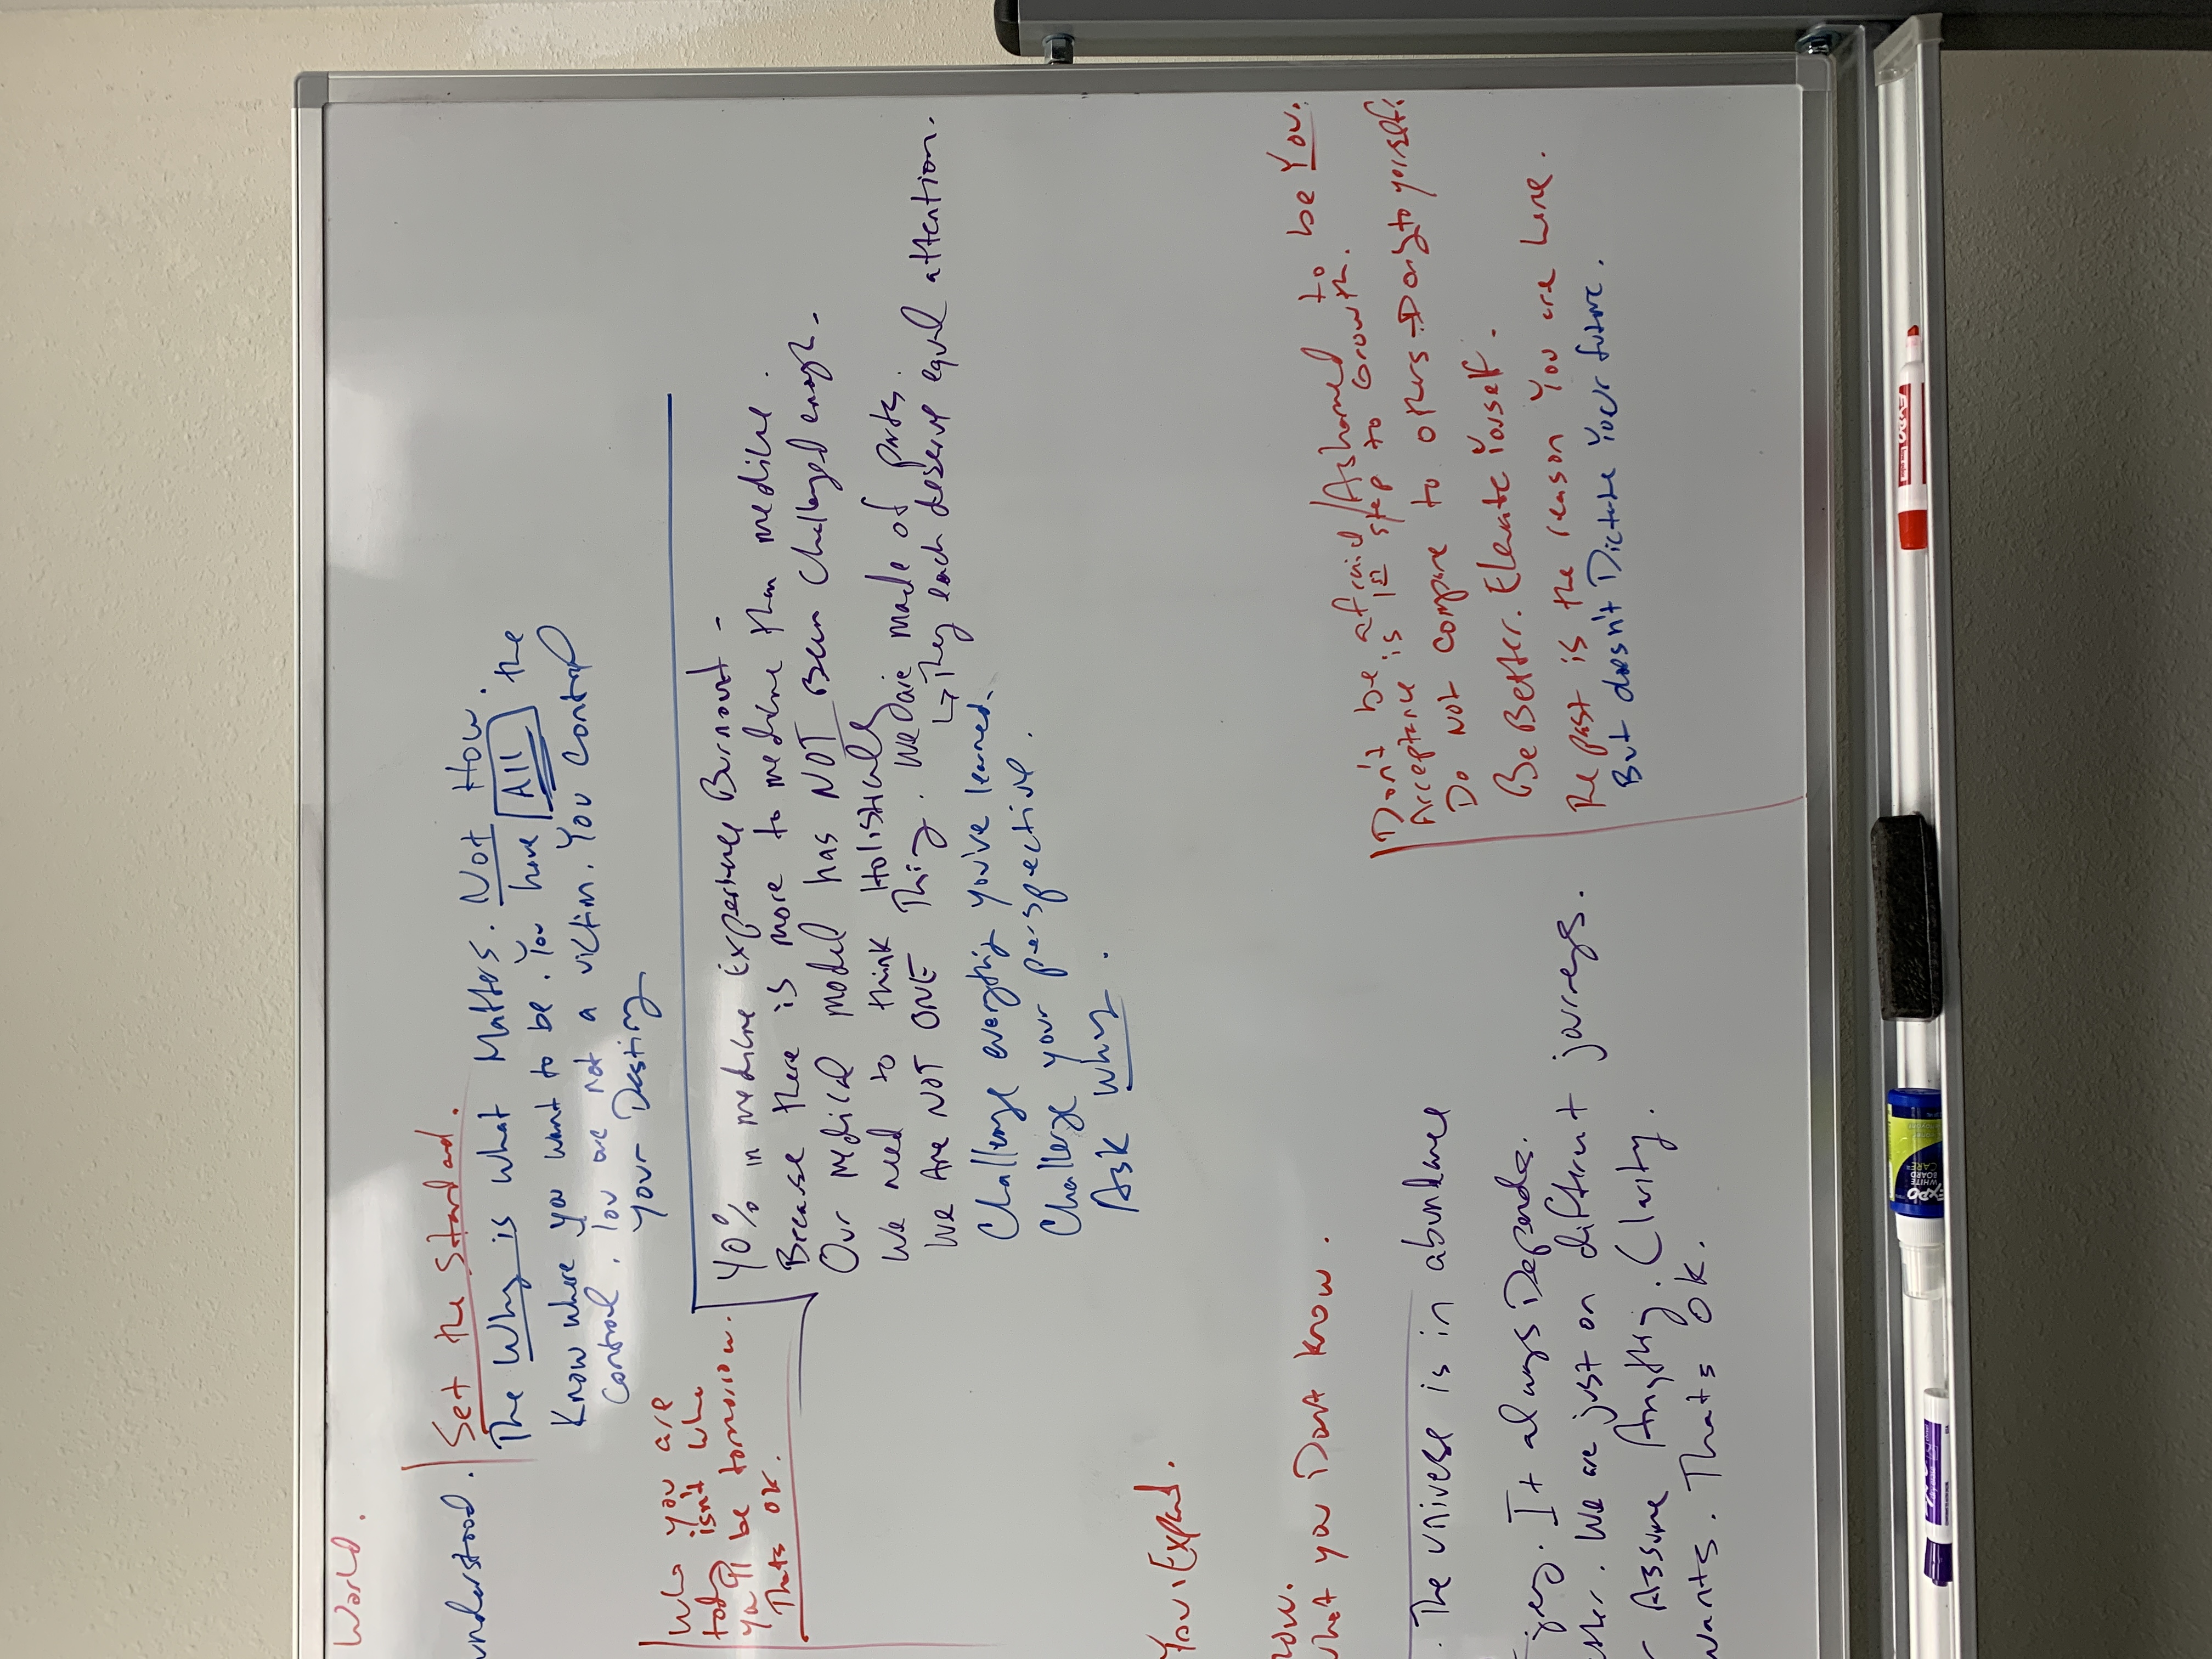 World.
understood.
Set the Standard.
The Why is what Matters. Not How.
Know where you want to be. You have All the
control. You are not a victim. You control
your Destiny
Who you are
today isn't who
you'll be tomorrow.
Thats ok.
40% in medicine Experience Burnout -
Because there is more to medicine than medicine.
Our medical model has NOT Been challenged enough.
We need to think Holistically
We Are NOT ONE Thing. We are made of parts.
↳ They each deserve equal attention.
Challenge everything you've learned.
Challenge your perspective.
Ask Why.
You Expand.
now.
what you Dont know.
Don't be afraid/Ashamed to be You.
Acceptance is 1st step to Growth.
Do Not compare to others → only to yourself.
Be Better. Elevate Yourself.
The past is the reason You are here.
But doesn't Dictate Your future.
. The universe is in abundance
. It always Depends.
. We are just on different journeys.
Assume Anything. Clarity.
wants. Thats Ok.
EXPO
WHITE
BOARD
CARE